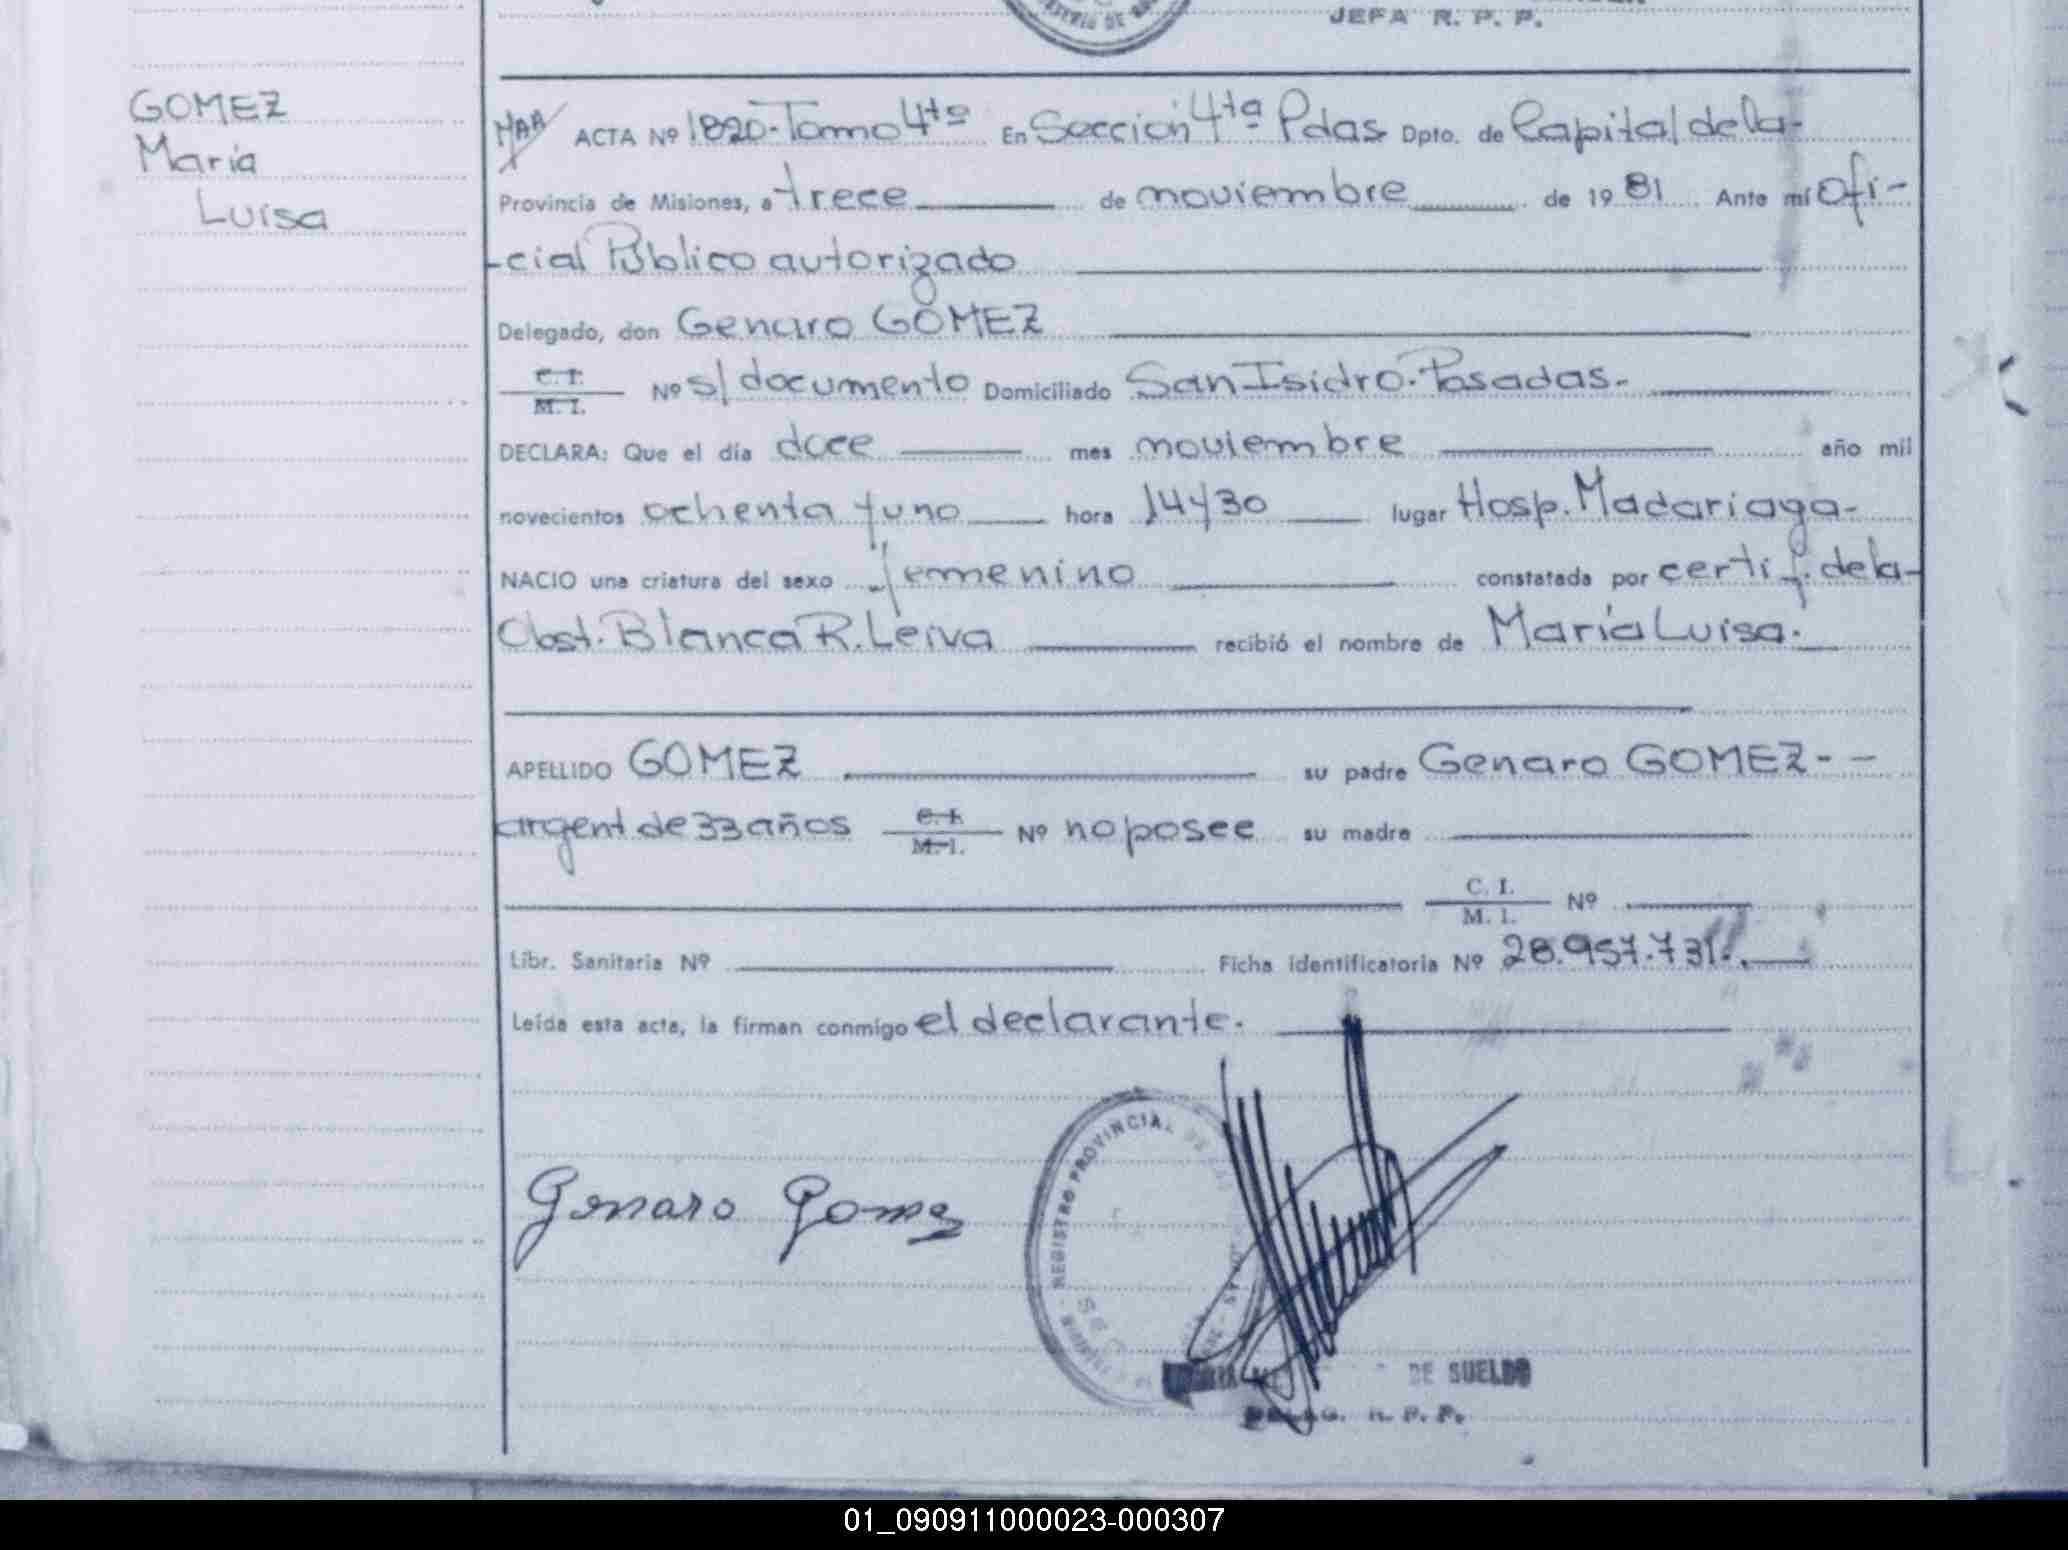 JEFA R. P. P.
GOMEZ
María
Luisa
ACTA Nº 1820-Tomo 4to En Sección 4ta Pdas Dpto. de Capital de la-
Provincia de Misiones, a trece de noviembre de 1981 Ante mí Ofi-
-cial Público autorizado
Delegado, don Genaro GOMEZ
C. I.
M. I. Nº s/documento Domiciliado San Isidro.Posadas.-
DECLARA: Que el día doce mes noviembre año mil
novecientos ochenta y uno hora 14y30 lugar Hosp. Madariaga-
NACIO una criatura del sexo femenino constatada por certif. de la-
Obst. Blanca R. Leiva recibió el nombre de María Luisa.
APELLIDO GOMEZ su padre Genaro GOMEZ--
argent. de 33 años C. I. M. I. Nº no posee su madre
C. I.
M. I. Nº
Libr. Sanitaria Nº Ficha Identificatoria Nº 28.957.731.
Leída esta acta, la firman conmigo el declarante.
Genaro Gomez
REGISTRO PROVINCIAL
DE SUELDO
R. P. P.
01_090911000023-000307